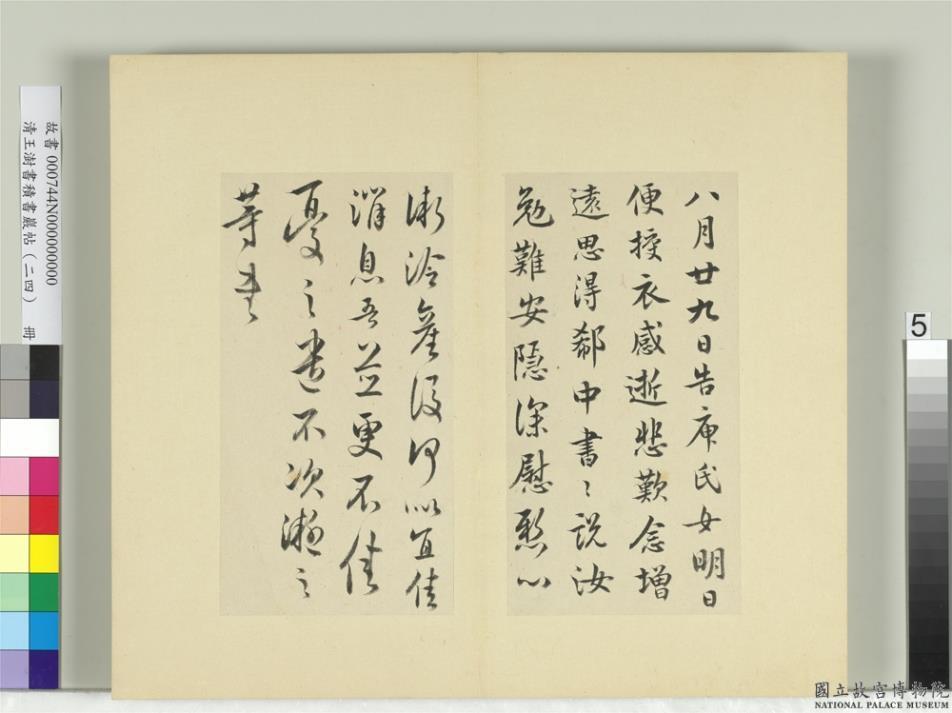 八月廿九日告庾氏女明日
便授衣感逝悲歎念增
遠思得郗中書書說汝
勉難安隱深慰懸心
漸冷產後何以宜佳
消息吾並更不佳
憂之遣不次瀞之
等書
故書 000744N000000000
清王澍書積書巖帖(二四) 冊
5
國立故宮博物院
NATIONAL PALACE MUSEUM